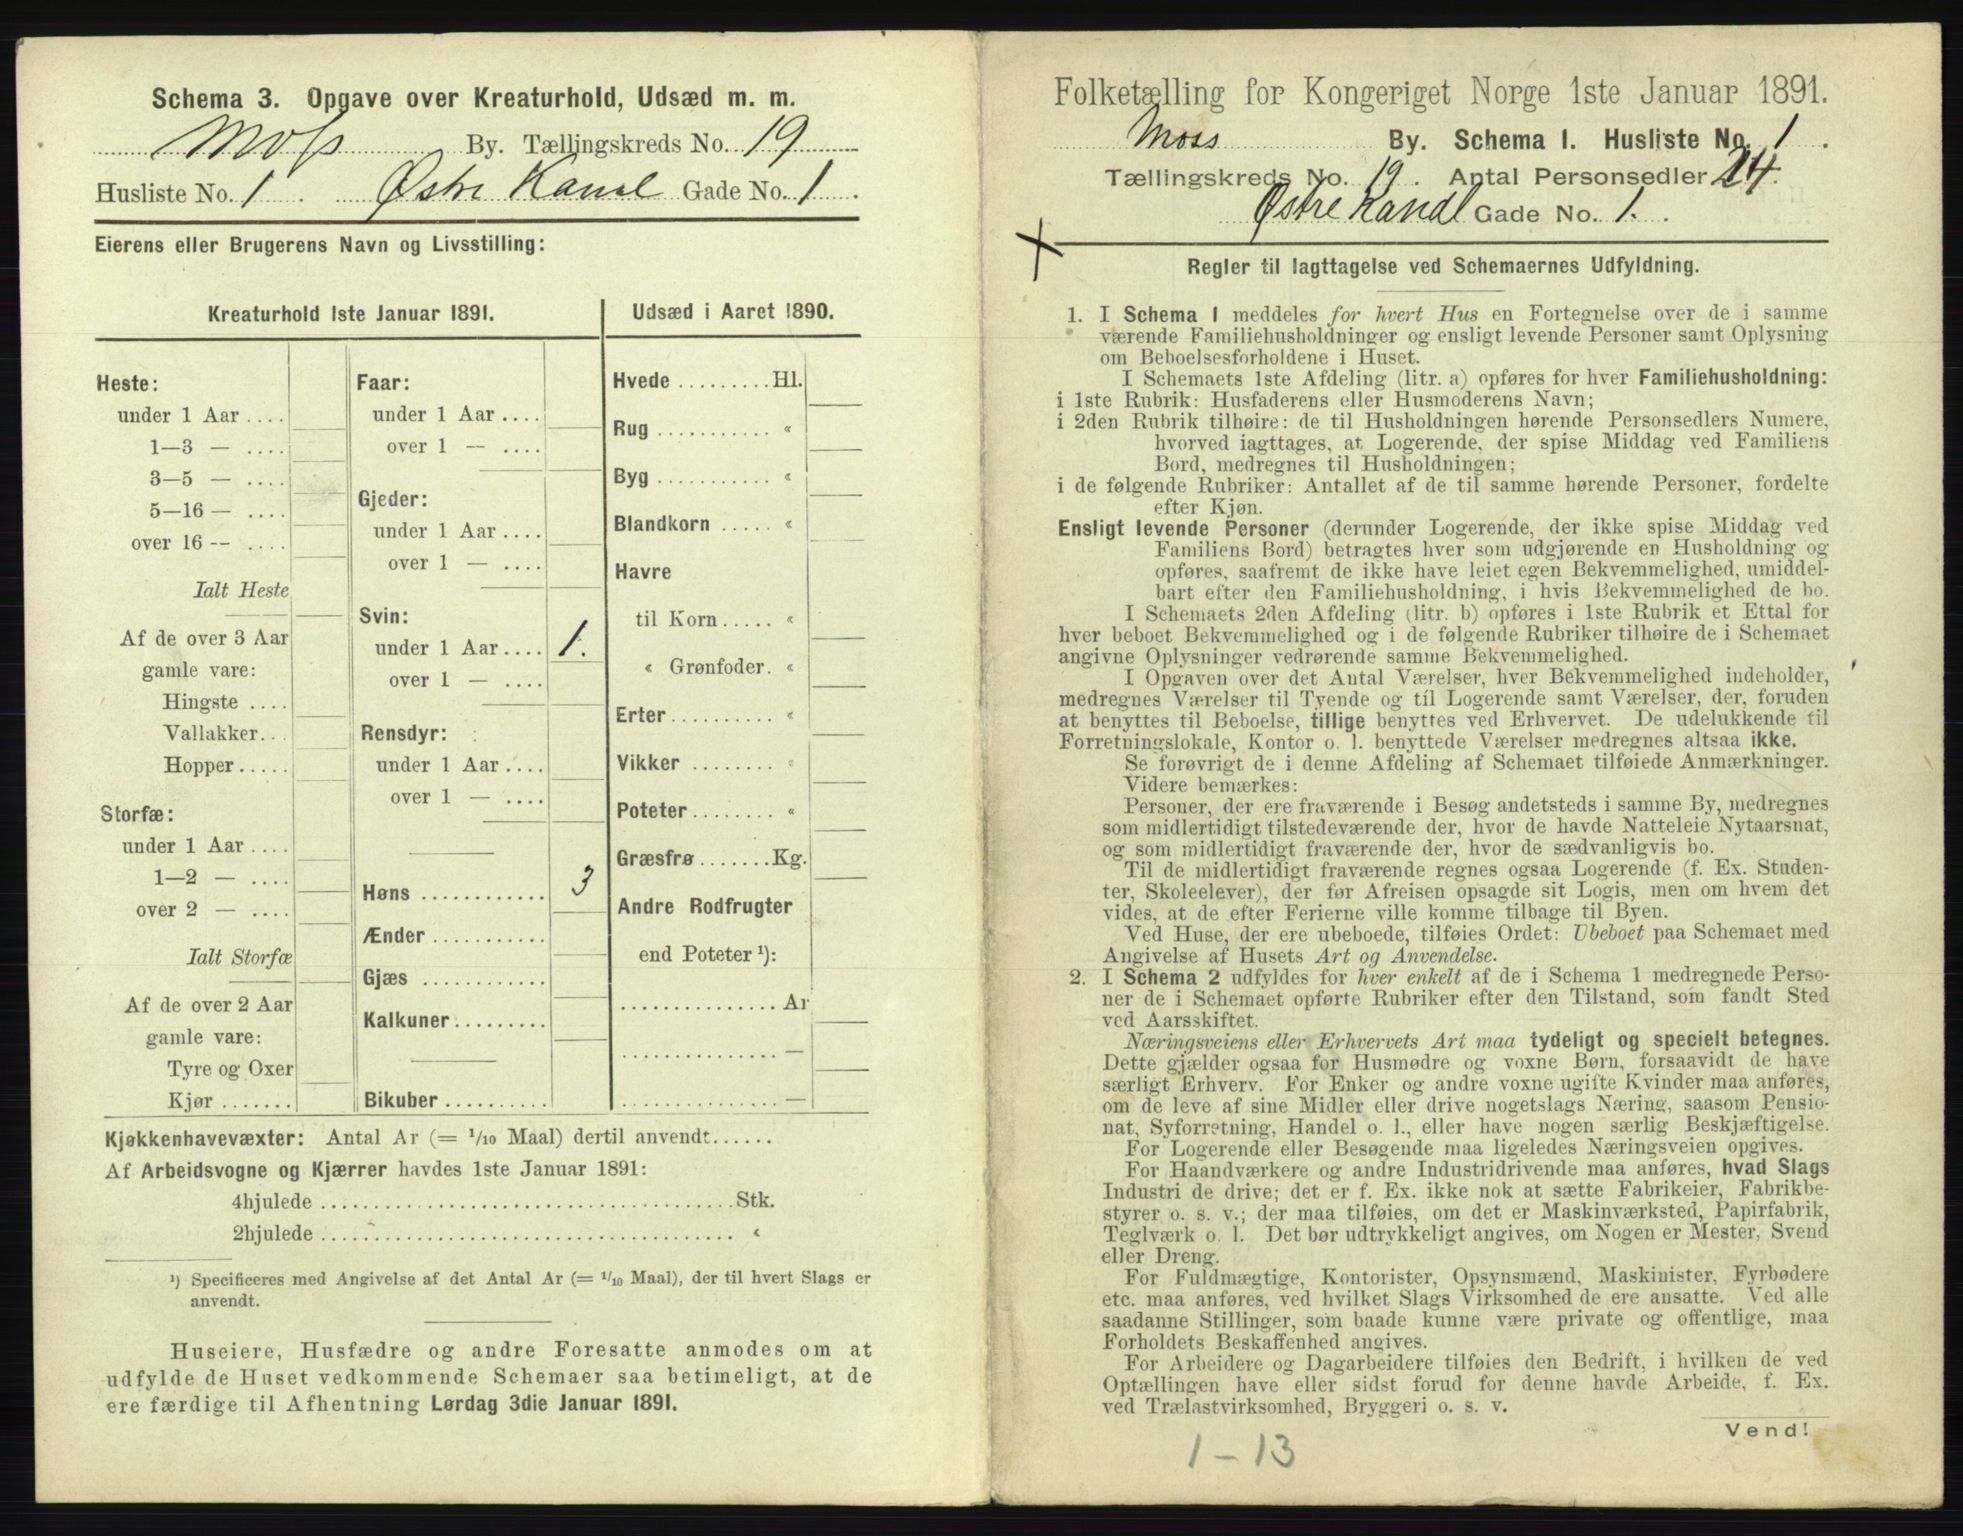 Schema 3. Opgave over Kreaturhold, Udsæd m. m.
Moss By. Tællingskreds No. 19
Husliste No. 1 Østre Kanal Gade No. 1.
Eierens eller Brugerens Navn og Livsstilling:
Kreaturhold 1ste Januar 1891.
Heste:
under 1 Aar ....
1—3 — ....
3—5 — ....
5—16 — ....
over 16 -- ....
Ialt Heste
Af de over 3 Aar
gamle vare:
Hingste ....
Vallakker...
Hopper.....
Storfæ:
under 1 Aar ....
1—2 — ....
over 2 — ....
Ialt Storfæ
Af de over 2 Aar
gamle vare:
Tyre og Oxer
Kjør .......
Faar:
under 1 Aar ....
over 1 — ....
Gjeder:
under 1 Aar ....
over 1 — ....
Svin:
under 1 Aar .... 1.
over 1 — ....
Rensdyr:
under 1 Aar ....
over 1 — ....
Høns ............ 3
Ænder ...........
Gjæs ............
Kalkuner.........
Bikuber ..........
Udsæd i Aaret 1890.
Hvede .........Hl.
Rug ........... «
Byg ........... «
Blandkorn ..... «
Havre
til Korn ..... «
« Grønfoder. «
Erter.......... «
Vikker ........ «
Poteter........ «
Græsfrø .......Kg.
Andre Rodfrugter
end Poteter ¹):
............... Ar
............... —
............... —
Kjøkkenhavevæxter: Antal Ar (= 1/10 Maal) dertil anvendt......
Af Arbeidsvogne og Kjærrer havdes 1ste Januar 1891:
4hjulede .....................................Stk.
2hjulede ..................................... «
¹) Specificeres med Angivelse af det Antal Ar (= 1/10 Maal), der til hvert Slags er
anvendt.
Huseiere, Husfædre og andre Foresatte anmodes om at
udfylde de Huset vedkommende Schemaer saa betimeligt, at de
ere færdige til Afhentning Lørdag 3die Januar 1891.
Folketælling for Kongeriget Norge 1ste Januar 1891.
Moss By. Schema 1. Husliste No. 1.
Tællingskreds No. 19. Antal Personsedler 24.
Østre Kanal Gade No. 1.
Regler til Iagttagelse ved Schemaernes Udfyldning.
1. I Schema 1 meddeles for hvert Hus en Fortegnelse over de i samme
værende Familiehusholdninger og ensligt levende Personer samt Oplysning
om Beboelsesforholdene i Huset.
I Schemaets 1ste Afdeling (litr. a) opføres for hver Familiehusholdning:
i 1ste Rubrik: Husfaderens eller Husmoderens Navn;
i 2den Rubrik tilhøire: de til Husholdningen hørende Personsedlers Numere,
hvorved iagttages, at Logerende, der spise Middag ved Familiens
Bord, medregnes til Husholdningen;
i de følgende Rubriker: Antallet af de til samme hørende Personer, fordelte
efter Kjøn.
Ensligt levende Personer (derunder Logerende, der ikke spise Middag ved
Familiens Bord) betragtes hver som udgjørende en Husholdning og
opføres, saafremt de ikke have leiet egen Bekvemmelighed, umiddel-
bart efter den Familiehusholdning, i hvis Bekvemmelighed de bo.
I Schemaets 2den Afdeling (litr. b) opføres i 1ste Rubrik et Ettal for
hver beboet Bekvemmelighed og i de følgende Rubriker tilhøire de i Schemaet
angivne Oplysninger vedrørende samme Bekvemmelighed.
I Opgaven over det Antal Værelser, hver Bekvemmelighed indeholder,
medregnes Værelser til Tyende og til Logerende samt Værelser, der, foruden
at benyttes til Beboelse, tillige benyttes ved Erhvervet. De udelukkende til
Forretningslokale, Kontor o. l. benyttede Værelser medregnes altsaa ikke.
Se forøvrigt de i denne Afdeling af Schemaet tilføiede Anmærkninger.
Videre bemærkes:
Personer, der ere fraværende i Besøg andetsteds i samme By, medregnes
som midlertidigt tilstedeværende der, hvor de havde Natteleie Nytaarsnat,
og som midlertidigt fraværende der, hvor de sædvanligvis bo.
Til de midlertidigt fraværende regnes ogsaa Logerende (f. Ex. Studen-
ter, Skoleelever), der før Afreisen opsagde sit Logis, men om hvem det
vides, at de efter Ferierne ville komme tilbage til Byen.
Ved Huse, der ere ubeboede, tilføies Ordet: Ubeboet paa Schemaet med
Angivelse af Husets Art og Anvendelse.
2. I Schema 2 udfyldes for hver enkelt af de i Schema 1 medregnede Perso-
ner de i Schemaet opførte Rubriker efter den Tilstand, som fandt Sted
ved Aarsskiftet.
Næringsveiens eller Erhvervets Art maa tydeligt og specielt betegnes.
Dette gjælder ogsaa for Husmødre og voxne Børn, forsaavidt de have
særligt Erhverv. For Enker og andre voxne ugifte Kvinder maa anføres,
om de leve af sine Midler eller drive nogetslags Næring, saasom Pensio-
nat, Syforretning, Handel o. l., eller have nogen særlig Beskjæftigelse.
For Logerende eller Besøgende maa ligeledes Næringsveien opgives.
For Haandværkere og andre Industridrivende maa anføres, hvad Slags
Industri de drive; det er f. Ex. ikke nok at sætte Fabrikeier, Fabrikbe-
styrer o. s. v.; der maa tilføies, om det er Maskinværksted, Papirfabrik,
Teglværk o. l. Det bør udtrykkeligt angives, om Nogen er Mester, Svend
eller Dreng.
For Fuldmægtige, Kontorister, Opsynsmænd, Maskinister, Fyrbødere
etc. maa anføres, ved hvilket Slags Virksomhed de ere ansatte. Ved alle
saadanne Stillinger, som baade kunne være private og offentlige, maa
Forholdets Beskaffenhed angives.
For Arbeidere og Dagarbeidere tilføies den Bedrift, i hvilken de ved
Optællingen have eller sidst forud for denne havde Arbeide, f. Ex.
ved Trælastvirksomhed, Bryggeri o. s. v.
Vend!
1-13